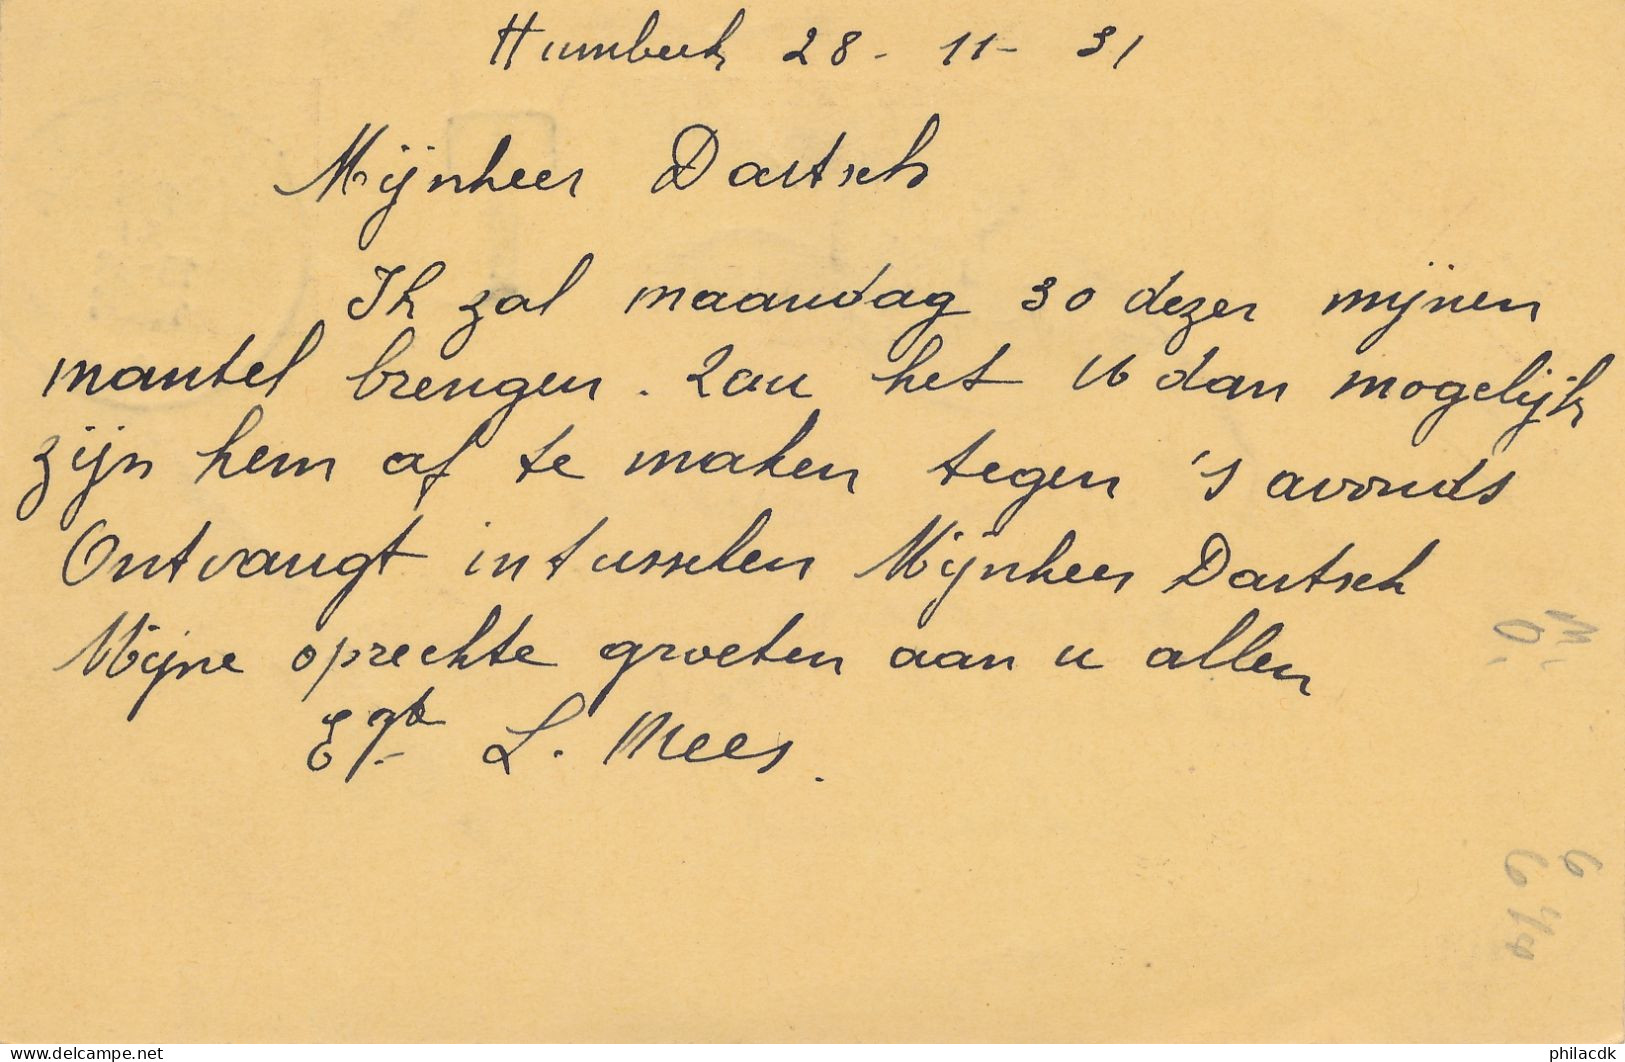 Humbeek 28 - 11 - 31
Mijnheer Dartsch
Ik zal maandag 30 dezer mijnen
mantel brengen. Zou het U dan mogelijk
zijn hem af te maken tegen 's avonds
Ontvangt intusschen Mijnheer Dartsch
Mijne oprechte groeten aan u allen
L. Mees.
www.delcampe.net
philacdk